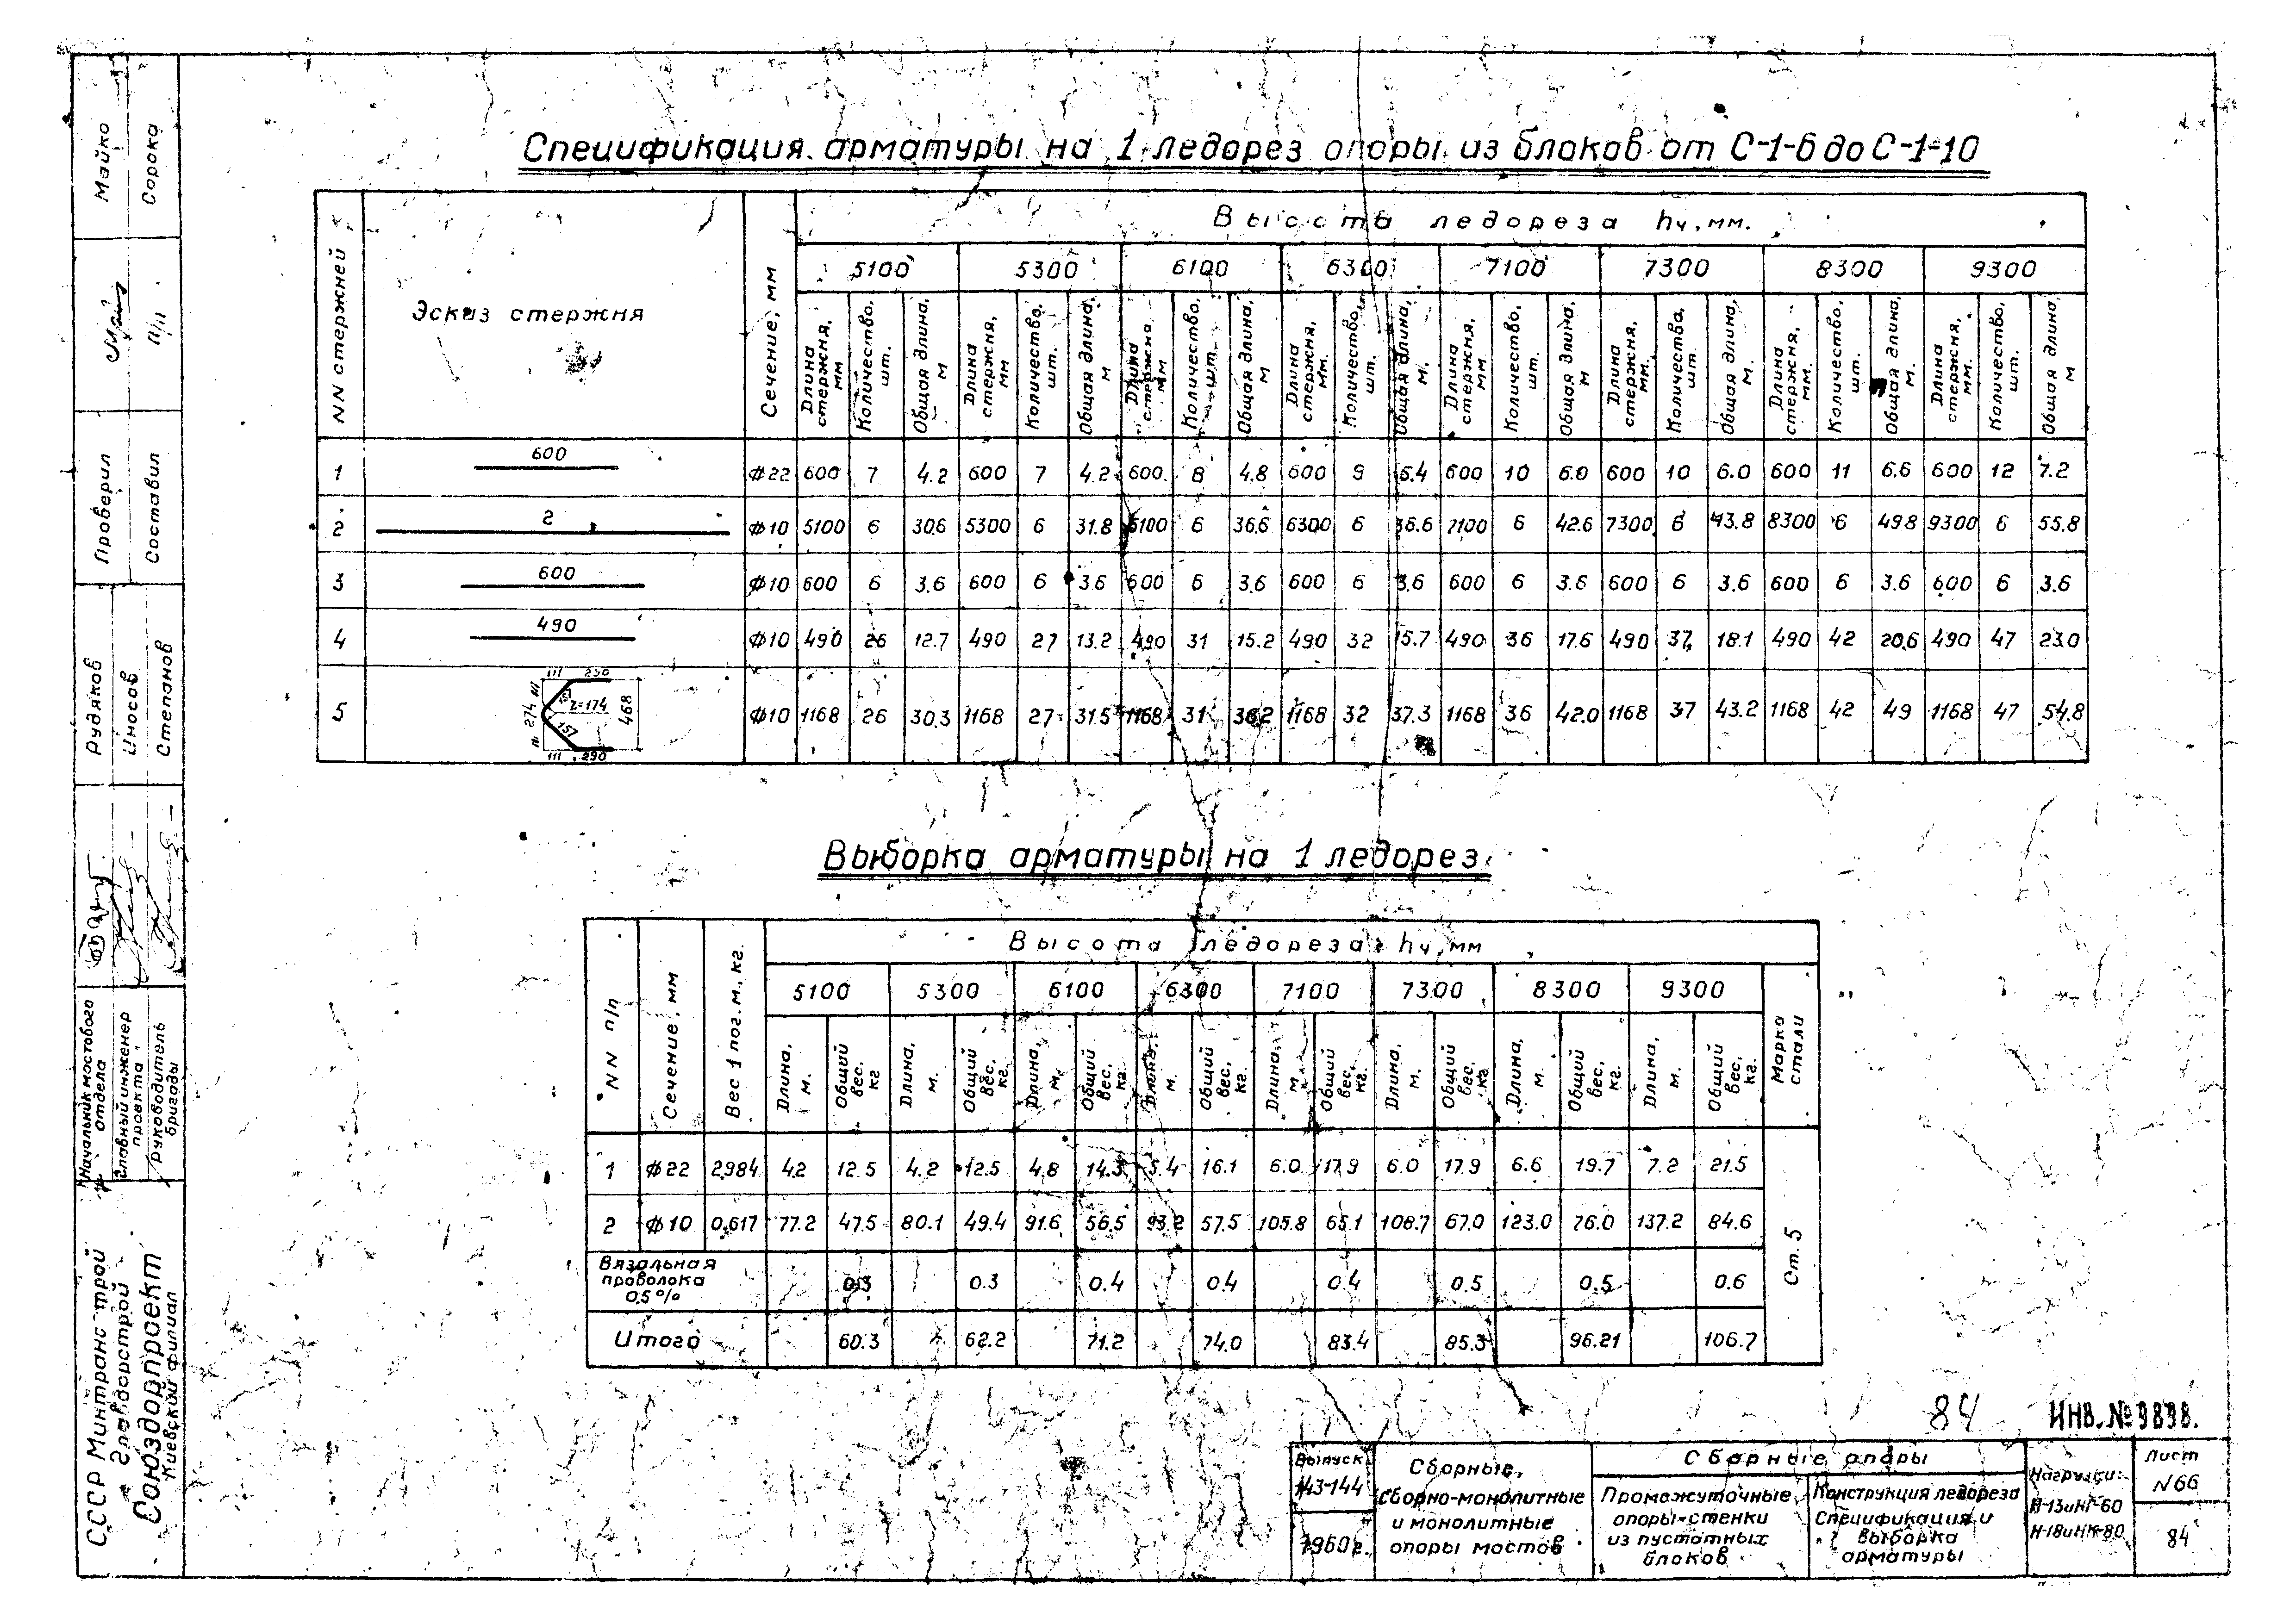 Спецификация арматуры на 1 ледорез опоры из блоков от С-1-6 до С-1-10
NN стержней
Эскиз стержня
Сечение, мм
Высота ледореза hч, мм.
5100 5300 6100 6300 7100 7300 8300 9300
Длина стержня, мм Количество, шт. Общая длина, м Длина стержня, мм Количество, шт. Общая длина, м Длина стержня мм Количество, шт. Общая длина, м Длина стержня, мм. Количество, шт. Общая длина, м. Длина стержня, мм. Количество, шт. Общая длина, м Длина стержня, мм. Количества, шт. Общая длина, м. Длина стержня, мм. Количество, шт. Общая длина, м. Длина стержня, мм. Количество, шт. Общая длина, м
1 600 ф22 600 7 4.2 600 7 4.2 600 8 4.8 600 9 5.4 600 10 6.0 600 10 6.0 600 11 6.6 600 12 7.2
2 2 ф10 5100 6 30.6 5300 6 31.8 6100 6 36.6 6300 6 36.6 7100 6 42.6 7300 6 43.8 8300 6 49.8 9300 6 55.8
3 600 ф10 600 6 3.6 600 6 3.6 600 6 3.6 600 6 3.6 600 6 3.6 600 6 3.6 600 6 3.6 600 6 3.6
4 490 ф10 490 26 12.7 490 27 13.2 490 31 15.2 490 32 15.7 490 36 17.6 490 37 18.1 490 42 20.6 490 47 23.0
111 290
111 274 111 157 r=174 157 468
111 290
5 ф10 1168 26 30.3 1168 27 31.5 1168 31 36.2 1168 32 37.3 1168 36 42.0 1168 37 43.2 1168 42 49 1168 47 54.8
Выборка арматуры на 1 ледорез
NN п/п
Сечение, мм
Вес 1 пог. м., кг.
Высота ледореза hч, мм
5100 5300 6100 6300 7100 7300 8300 9300
Марка стали
Длина, м. Общий вес, кг Длина, м. Общий вес, кг. Длина, м. Общий вес, кг. Длина, м. Общий вес, кг. Длина, м. Общий вес, кг. Длина, м. Общий вес, кг Длина, м. Общий вес, кг. Длина, м. Общий вес, кг.
1 ф22 2.984 4.2 12.5 4.2 12.5 4.8 14.3 5.4 16.1 6.0 17.9 6.0 17.9 6.6 19.7 7.2 21.5
2 ф10 0.617 77.2 47.5 80.1 49.4 91.6 56.5 93.2 57.5 105.8 65.1 108.7 67.0 123.0 76.0 137.2 84.6
Ст. 5
Вязальная
проволока
0.5%
0.3 0.3 0.4 0.4 0.4 0.5 0.5 0.6
Итого 60.3 62.2 71.2 74.0 83.4 85.3 96.21 106.7
84
ИНВ. № 9898.
Выпуск
143-144
1960г.
Сборные,
сборно-монолитные
и монолитные
опоры мостов
Сборные опоры
Промежуточные
опоры-стенки
из пустотных
блоков
Конструкция ледореза
Спецификация и
выборка
арматуры
Нагрузки:
Н-13иНГ-60
Н-18иНК-80
Лист
N66
84
Майко
Сорока
П/п
Проверил
Составил
Рудяков
Иносов
Степанов
Начальник мостового
отдела
Главный инженер
проекта
руководитель
бригады
СССР Минтрансстрой
Главдорстрой
Союздорпроект
Киевский филиал